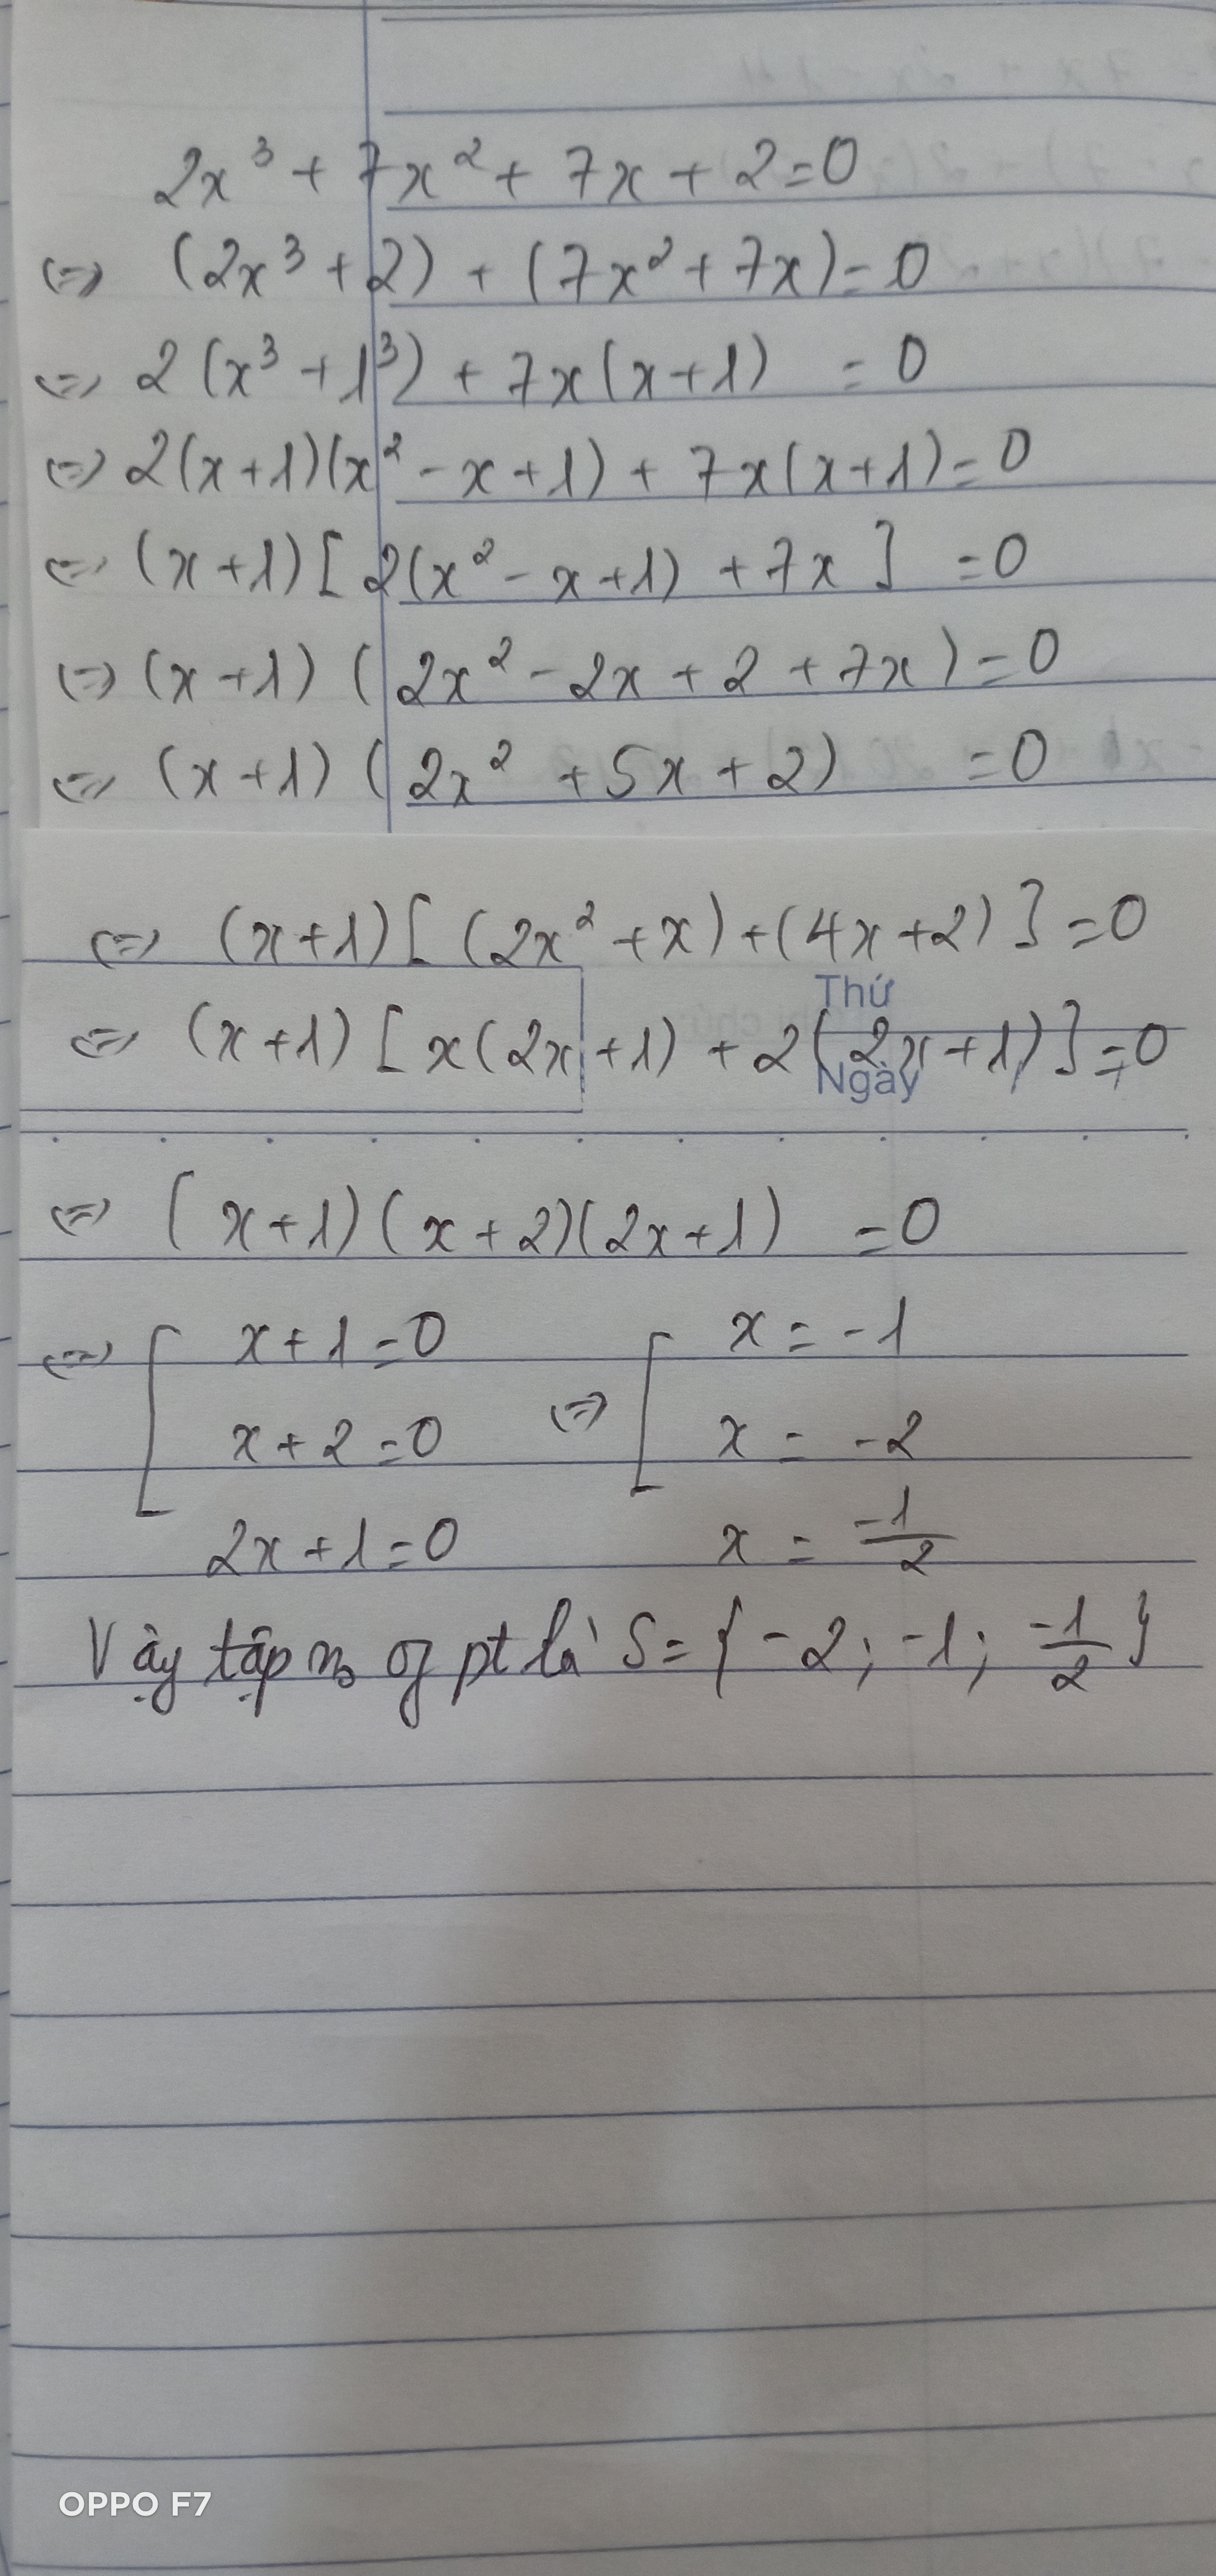 2x³ + 7x² + 7x + 2 = 0
⇔ (2x³ + 2) + (7x² + 7x) = 0
⇔ 2(x³ + 1³) + 7x(x+1) = 0
⇔ 2(x+1)(x² - x + 1) + 7x(x+1) = 0
⇔ (x+1)[2(x² - x + 1) + 7x] = 0
⇔ (x+1)(2x² - 2x + 2 + 7x) = 0
⇔ (x+1)(2x² + 5x + 2) = 0
⇔ (x+1)[(2x² + x) + (4x+2)] = 0
Thứ
⇔ (x+1)[x(2x+1) + 2(2x+1)] = 0
Ngày
⇔ (x+1)(x+2)(2x+1) = 0
⇔ [ x+1 = 0 ⇔ [ x = -1
x+2 = 0 x = -2
2x+1 = 0 x = -1/2
Vậy tập n₀ of pt là S = {-2; -1; -1/2}
OPPO F7